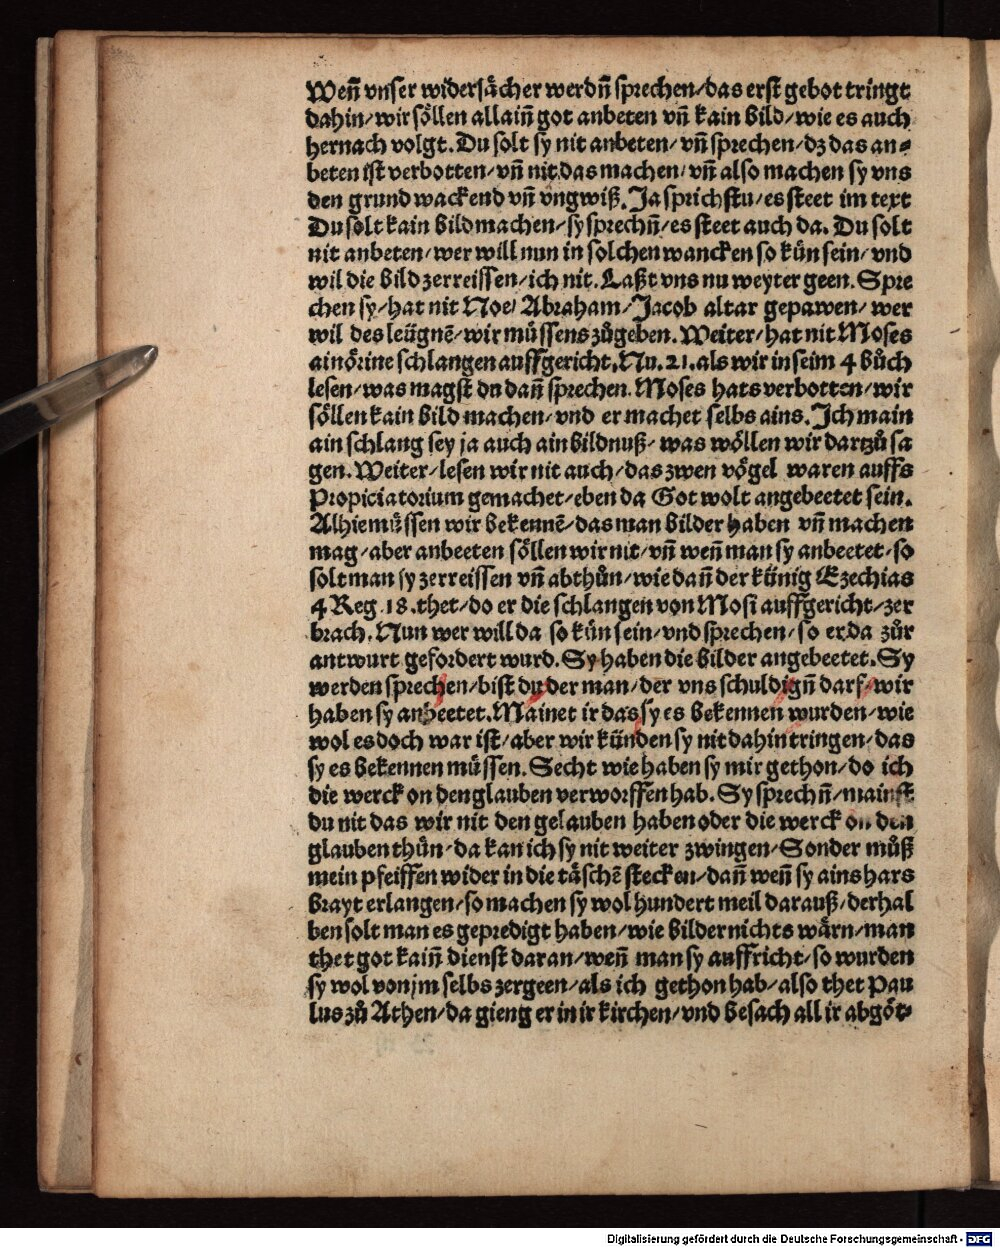 Weñ vnser widersächer werdñ sprechen/das erst gebot tringt
dahin/wir söllen allaiñ got anbeten vñ kain bild/wie es auch
hernach volgt. Du solt sy nit anbeten/vñ sprechen/dz das an⸗
beten ist verbotten/vñ nit das machen/vñ also machen sy vns
den grund wackend vñ vngwiß. Ja sprichstu/es steet im text
Du solt kain bild machen/sy sprechñ/es steet auch da. Du solt
nit anbeten/wer will nun in solchen wancken so kün sein/vnd
wil die bild zerreissen/ich nit. Laßt vns nu weyter geen. Spre
chen sy/hat nit Noe/Abraham/Jacob altar gepawen/wer
wil des leügnē/wir müssens zůgeben. Weiter/hat nit Moses
ain örine schlangen auffgericht. Nu. 21. als wir in seim 4 bůch
lesen/was magst du dañ sprechen. Moses hats verbotten/wir
söllen kain bild machen/vnd er machet selbs ains. Ich main
ain schlang sey ja auch ain bildnuß/was wöllen wir dartzů sa
gen. Weiter/lesen wir nit auch/das zwen vögel waren auffs
Propiciatorium gemachet/eben da Got wolt angebeetet sein.
Alhie müssen wir bekennē/das man bilder haben vñ machen
mag/aber anbeeten söllen wir nit/vñ weñ man sy anbeetet/so
solt man sy zerreissen vñ abthůn/wie dañ der künig Ezechias
4 Reg. 18. thet/do er die schlangen von Mosi auffgericht/zer
brach. Nun wer will da so kün sein/vnd sprechen/so er da zůr
antwurt gefordert wurd. Sy haben die bilder angebeetet. Sy
werden sprechen/bist du der man/der vns schuldigñ darf/wir
haben sy anbeetet. Mainet ir das sy es bekennen wurden/wie
wol es doch war ist/aber wir künden sy nit dahin tringen/das
sy es bekennen müssen. Secht wie haben sy mir gethon/do ich
die werck on den glauben verworffen hab. Sy sprechñ/mainst
du nit das wir nit den gelauben haben oder die werck on den
glauben thün/da kan ich sy nit weiter zwingen/Sonder můß
mein pfeiffen wider in die täschē stecken/dañ weñ sy ains hars
brayt erlangen/so machen sy wol hundert meil darauß/derhal
ben solt man es gepredigt haben/wie bilder nichts wärn/man
thet got kaiñ dienst daran/weñ man sy auffricht/so wurden
sy wol von jm selbs zergeen/als ich gethon hab/also thet Pau
lus zů Athen/da gieng er in ir kirchen/vnd besach all ir abgöt⸗
Digitalisierung gefördert durch die Deutsche Forschungsgemeinschaft - DFG